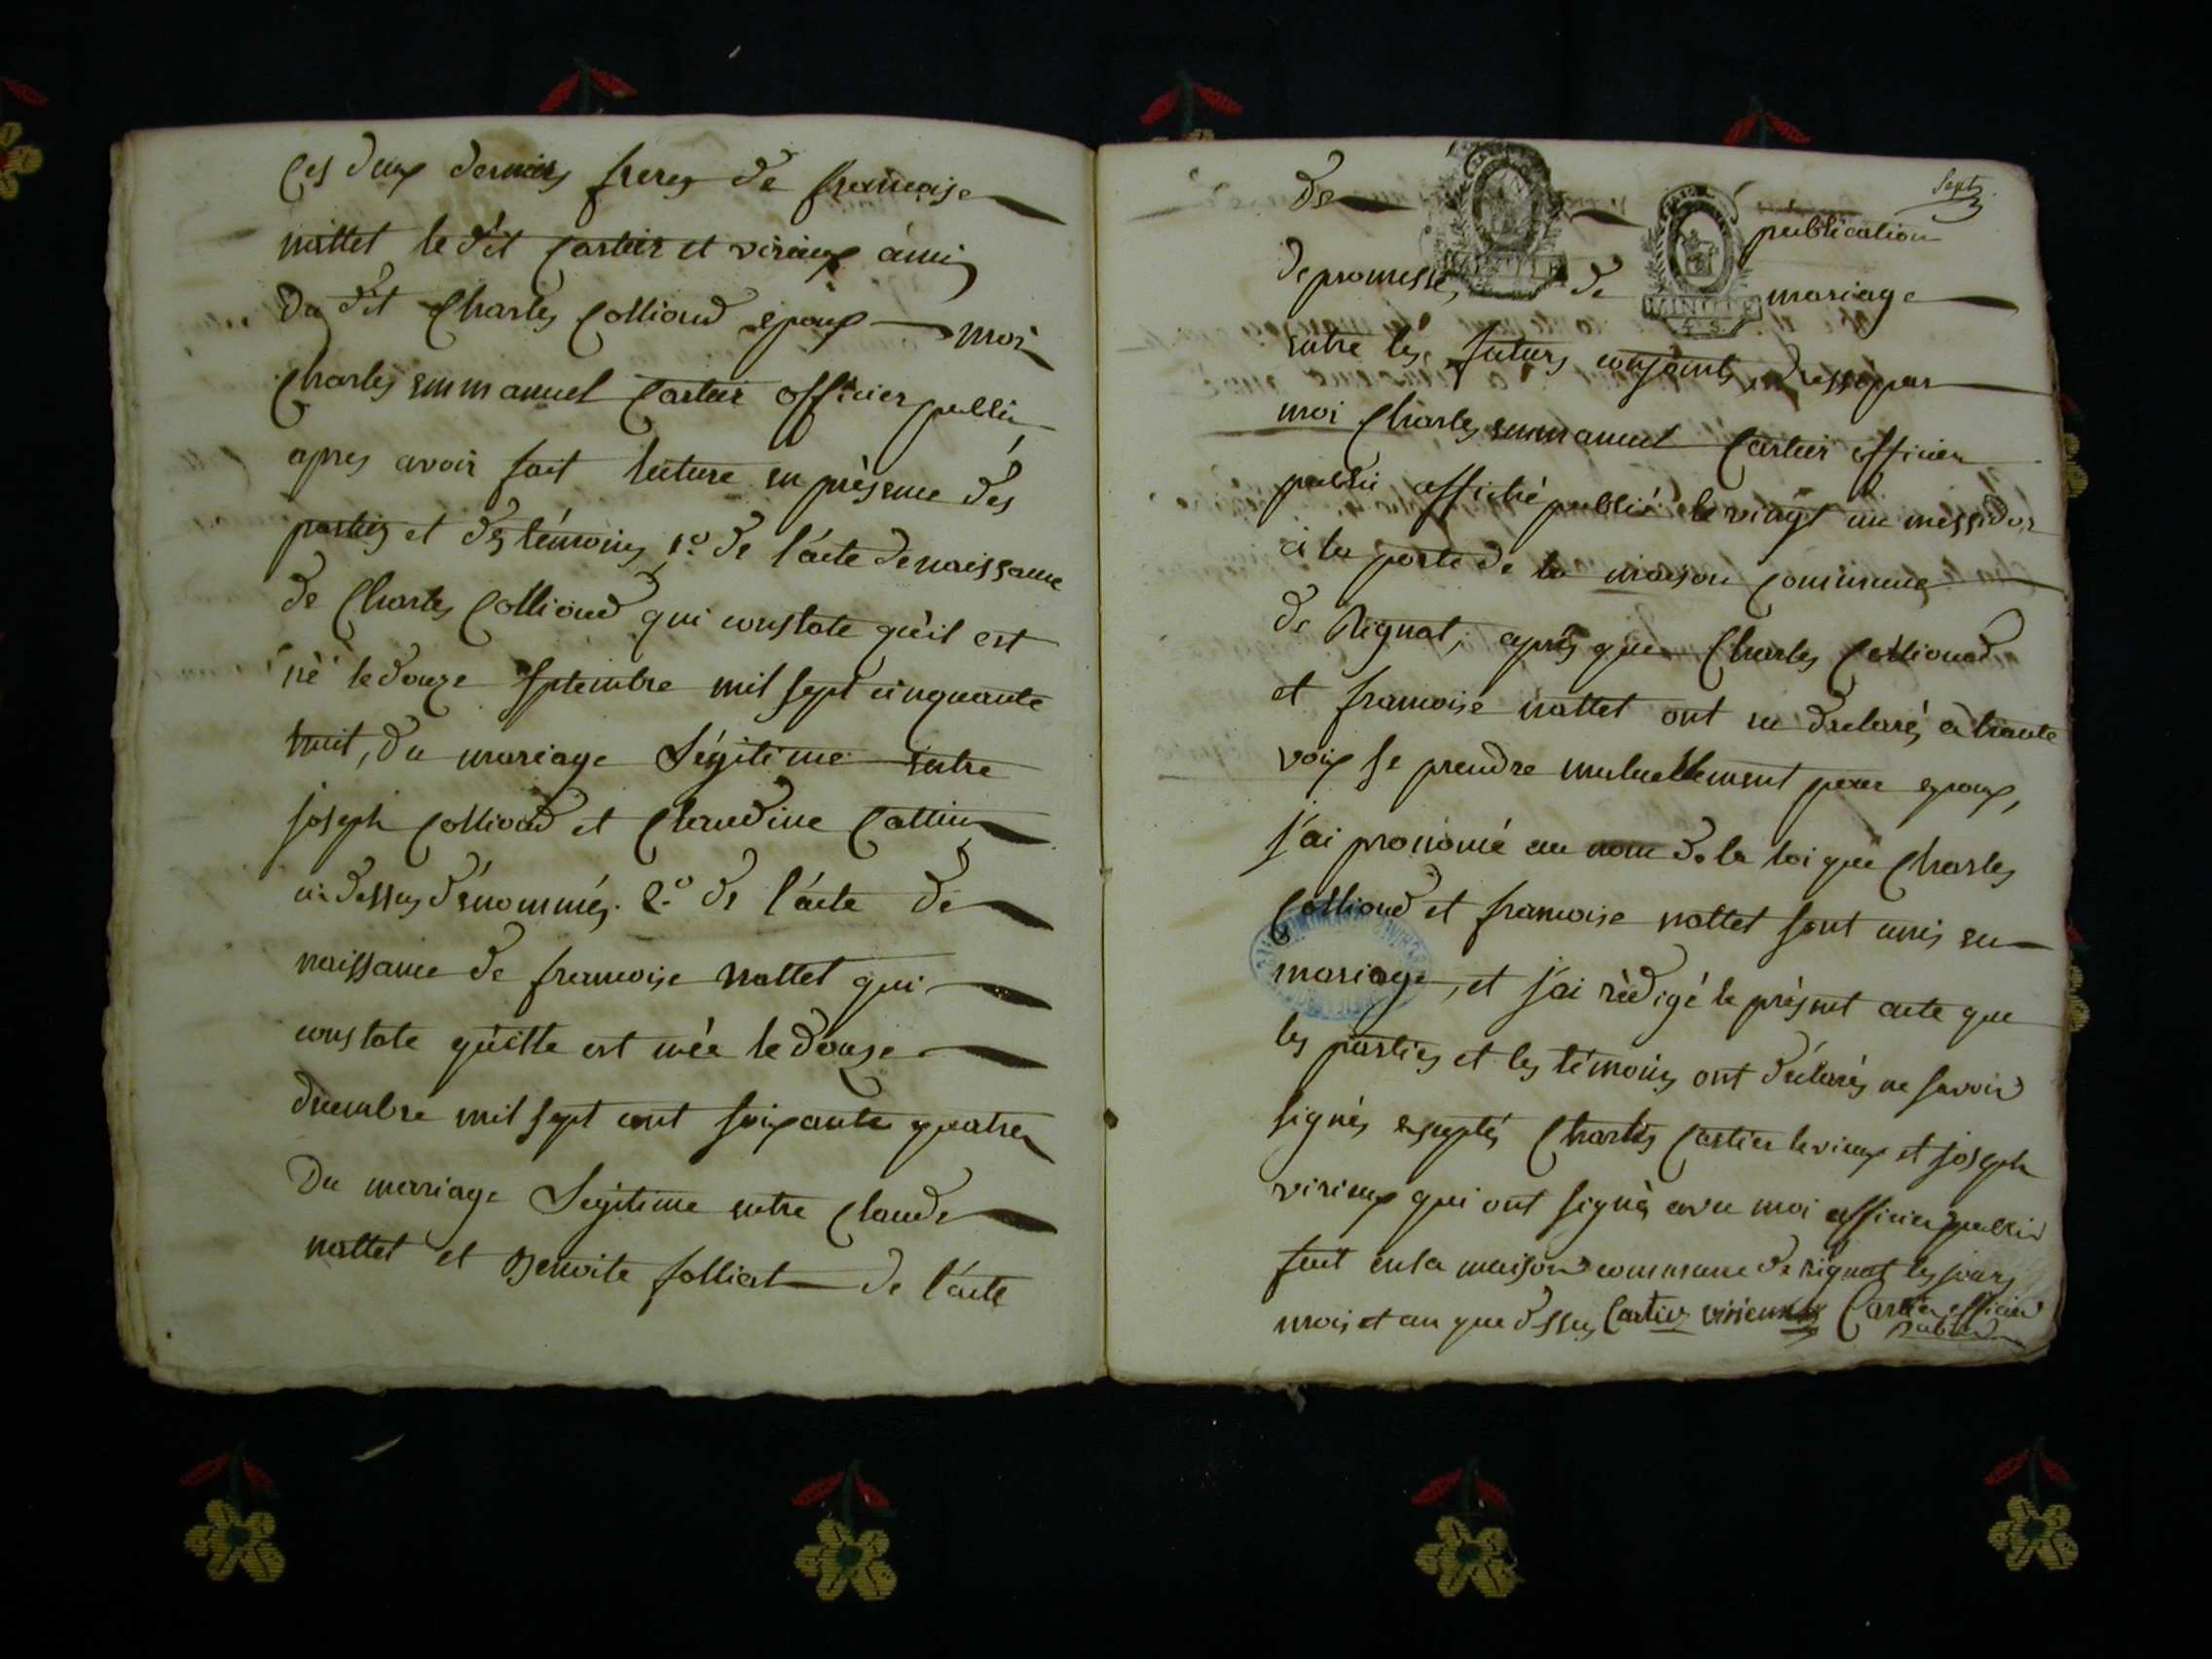 Ces deux derniers freres de francoise
nattet le dit Cartier et virieux amis
du dit Charles Colliond epoux moi
Charles emmanuel Cartier officier public
apres avoir fait lecture en présence des
parties et des témoins, 1º de l'acte de naissance
de Charles Colliond qui constate qu'il est
né le douze septembre mil sept cinquante
huit, du mariage Légitime entre
joseph Colliond et Claudine Cattin
ci dessus dénommés. 2º de l'acte de
naissance de francoise nattet qui
constate qu'elle est née le douze
decembre mil sept cent soixante quatre
Du mariage Legitime entre Claude
nattet et Benoite folliat de l'acte
Sept
de publication
de promesse de mariage
MINUTE
4. S.
entre les futurs conjoints, dressé par
moi Charles emmanuel Cartier officier
public affiché publié le vingt un messidor
à la porte de la maison Commune
de Rignat, après que Charles Colliond
et francoise nattet ont eu declaré, à haute
voix se prendre mutuellement pour epoux,
j'ai prononcé au nom de la loi que Charles
Colliond et francoise nattet sont unis en
mariage, et j'ai rédigé le présent acte que
les parties et les témoins ont déclarés ne savoir
signés exceptés Charles Cartier le vieux et joseph
virieux qui ont signés avec moi officier public
fait en la maison commune de Rignat les jours
mois et an que dessus Cartier virieux Cartier officier
public